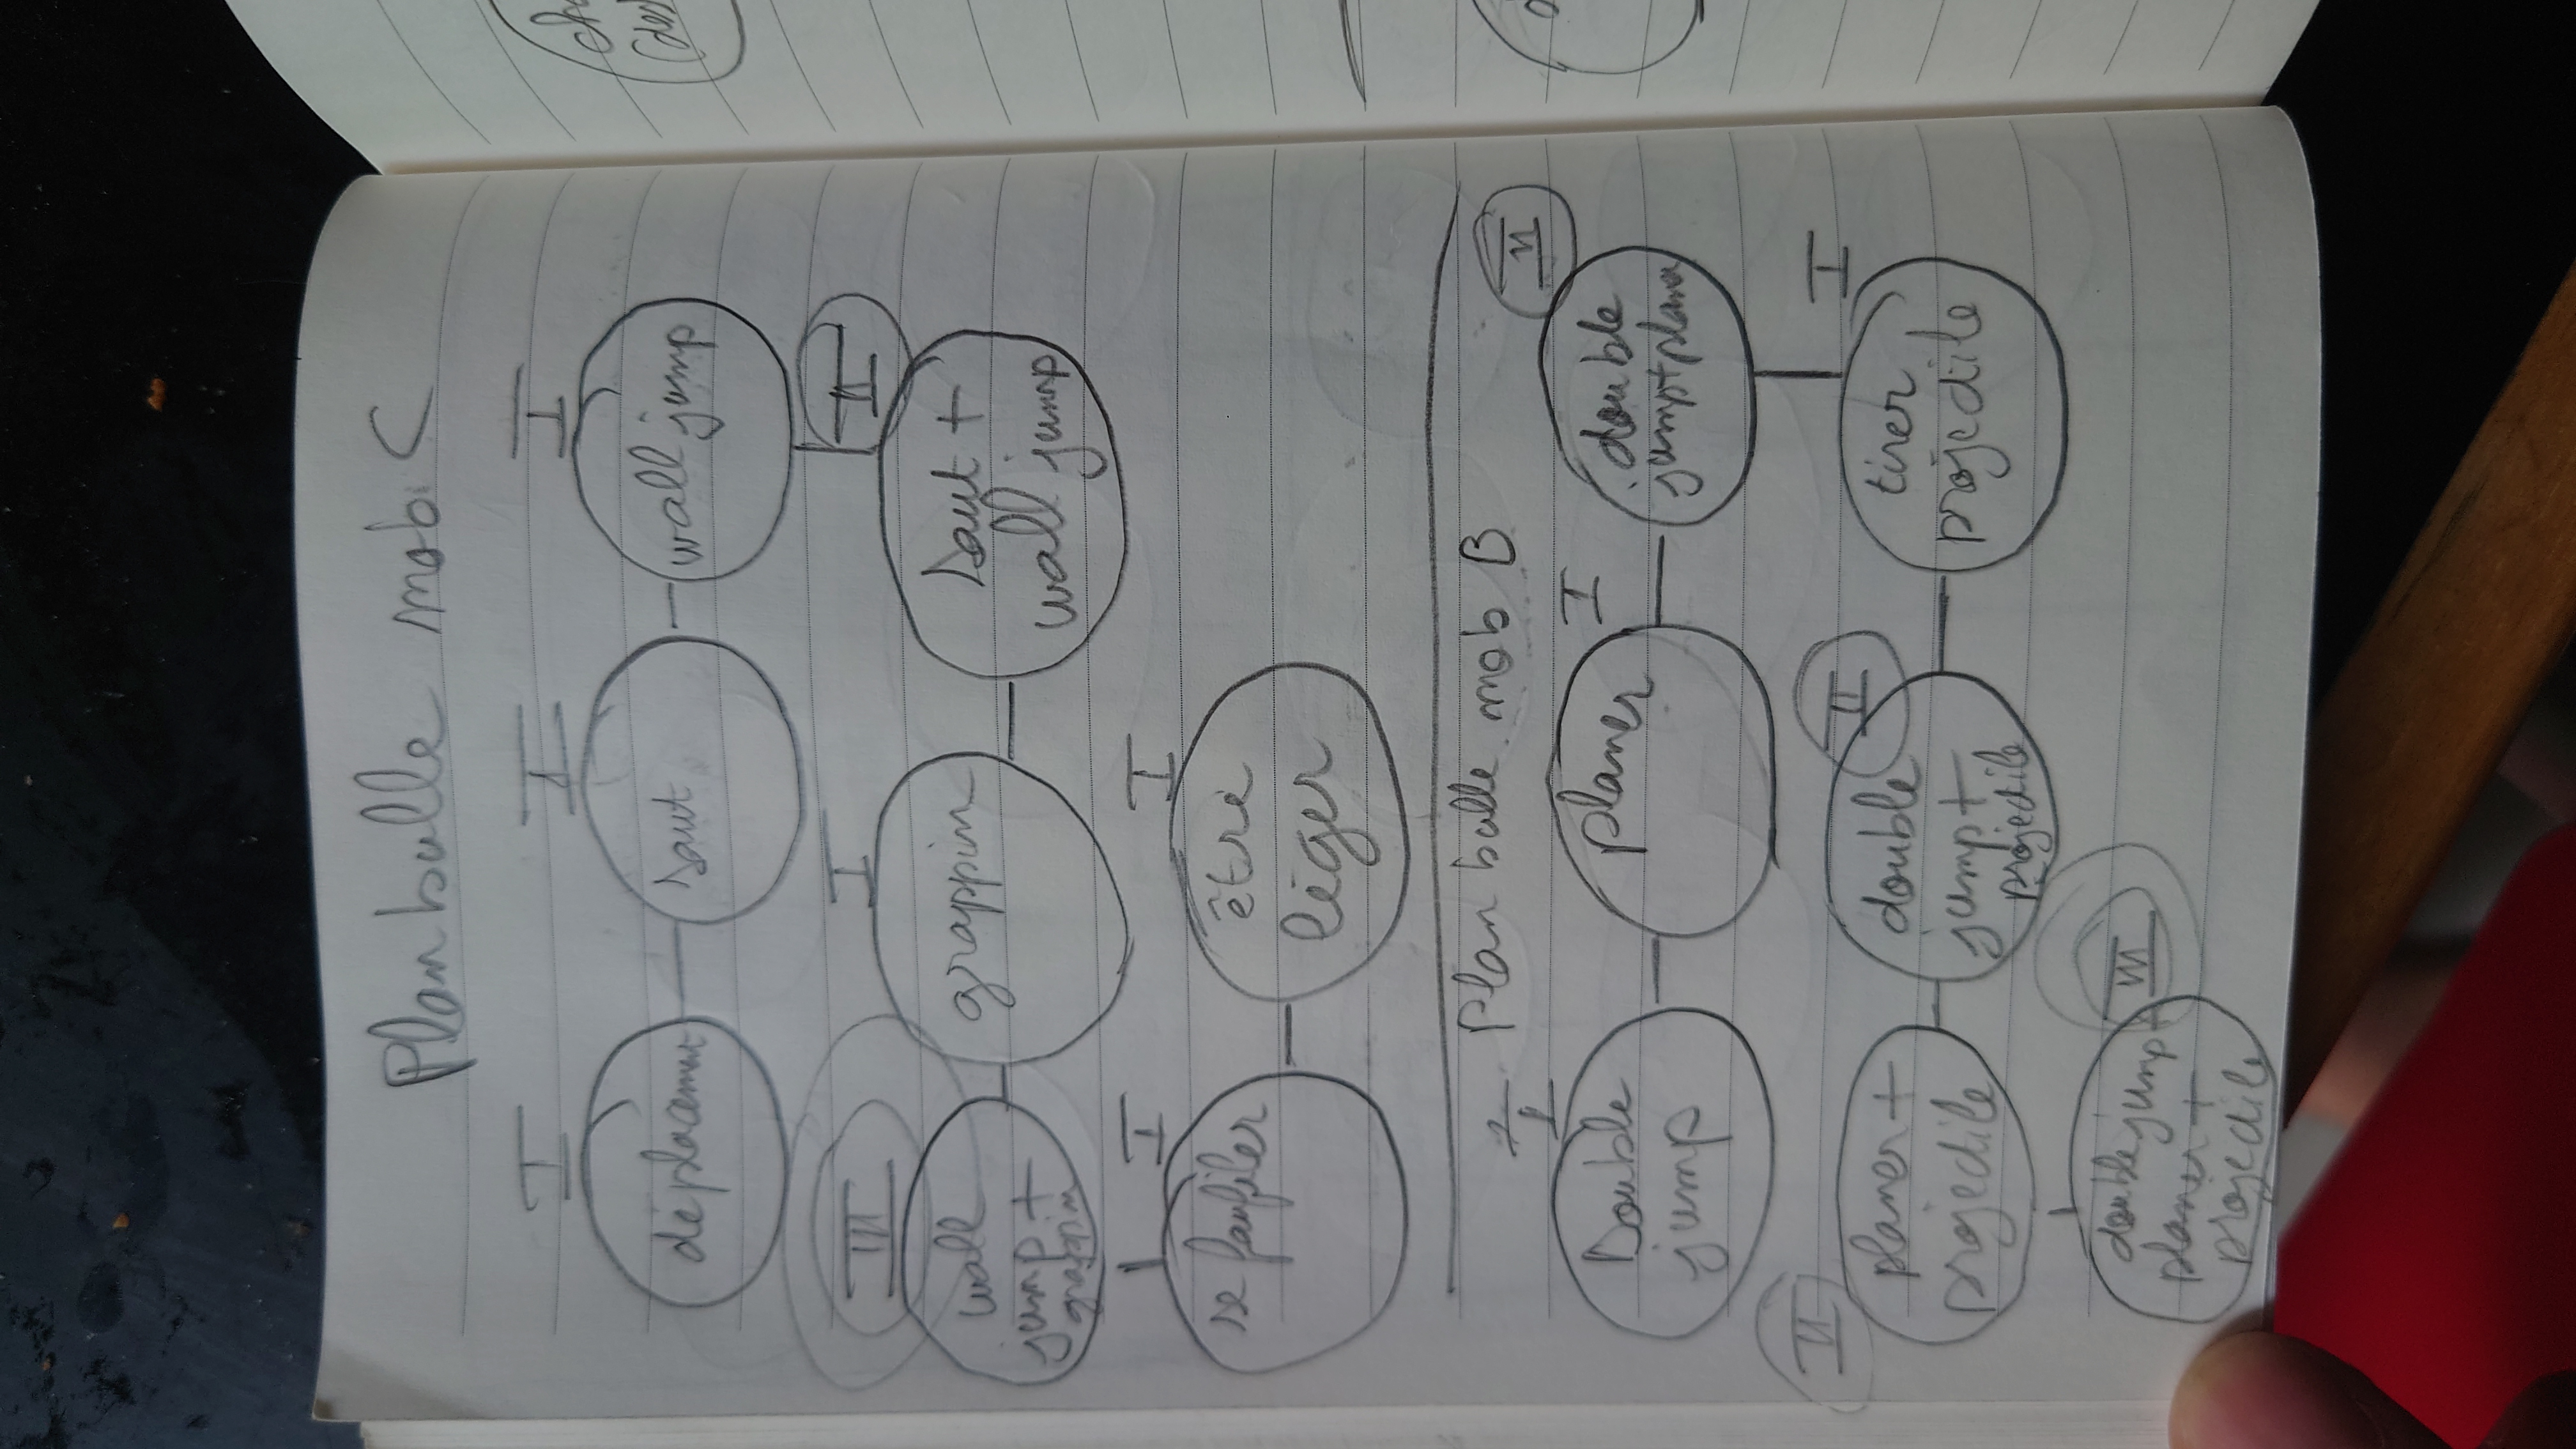 Plan bulle mob C
I I I
déplacement saut wall jump
III I II
wall
jump +
grappin
grappin
saut +
wall jump
I I
se faufiler
être
léger
Plan bulle mob B
I I II
Double
jump
planer
double
jump+planer
II II I
planer +
projectile
double
jump +
projectile
tirer
projectile
III
double jump +
planer +
projectile